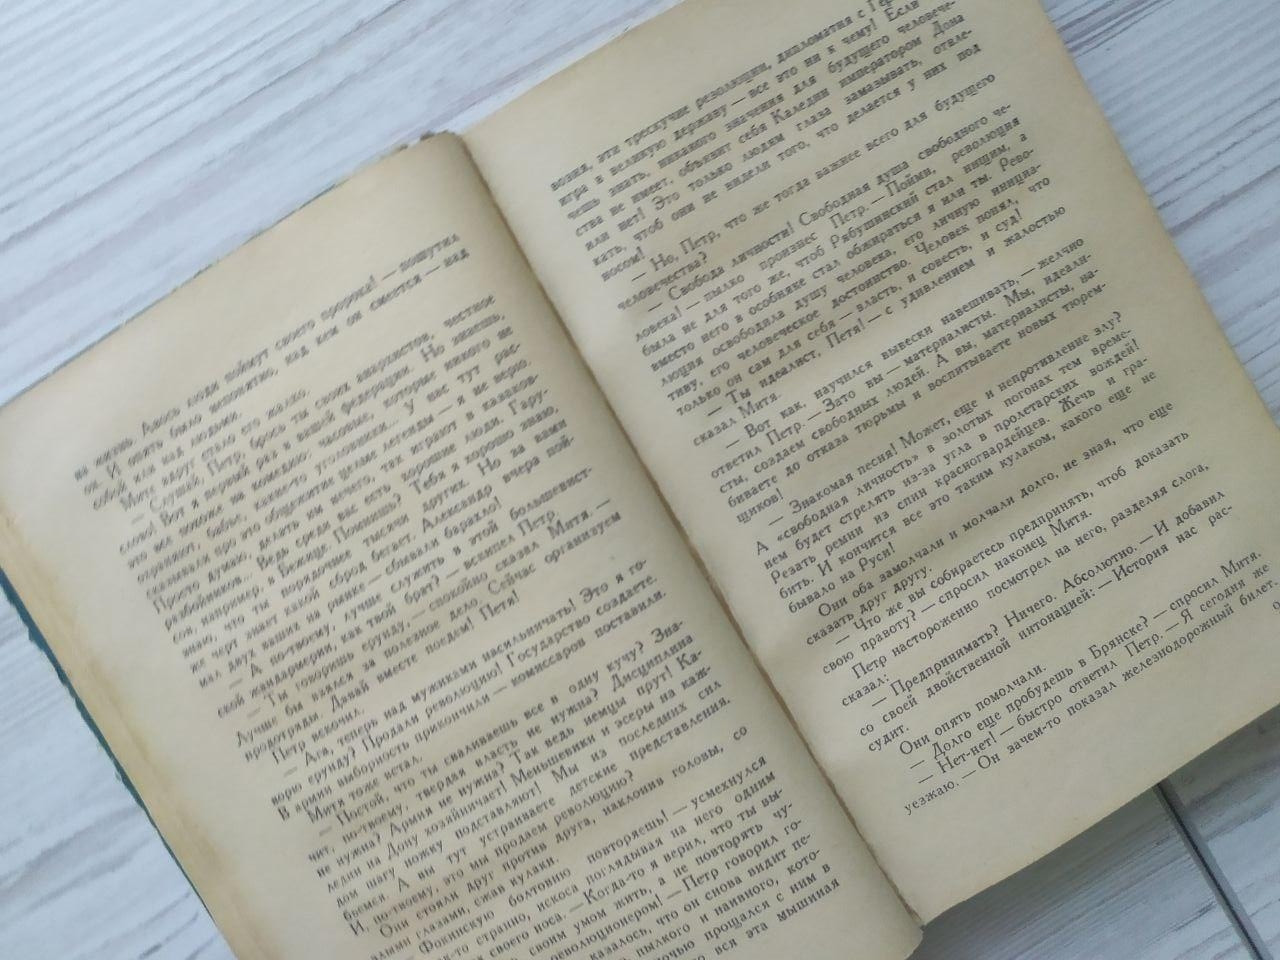 ни жизнь. Авось люди поймут своего пророка! — пошутил
он. И опять было непонятно, над кем он смеется — над
собой или над людьми.
Мите вдруг стало его жалко.
— Слушай, Петр, брось ты своих анархистов, честное
слово! Вот я первый раз в вашей федерации. Но знаешь,
это все похоже на комедию: часовые, которых никого не
отражают, бабье, какие-то уголовники... У нас тут рас-
сказывали про это общежитие целые легенды — я не верю.
Просто думаю, делать им нечего, так играют в казаков-
разбойников... Ведь среди вас есть хорошие люди. Гару-
сов, например, в Бежице. Помнишь? Тебя я хорошо знаю,
знаю, что ты порядочнее тысячи других. Но за вами
же черт знает какой сброд бегает. Александр вчера пой-
мал двух ваших на рынке — сбывали барахло!
— А по-твоему, лучше служить в этой большевист-
ской жандармерии, как твой брат? — вскипел Петр.
— Ты говоришь ерунду, — спокойно сказал Митя. —
Лучше бы взялся за полезное дело. Сейчас организуем
продотряды. Давай вместе поедем! Петя!
Петр вскочил.
— Ага, теперь над мужиками насильничать! Это я го-
ворю ерунду? Продали революцию! Государство создаете.
В армии выборность прикончили — комиссаров поставили.
Митя тоже встал.
— Постой, что ты сваливаешь все в одну кучу? Зна-
чит, по-твоему, твердая власть не нужна? Дисциплина
не нужна? Армия не нужна? Так ведь немцы прут! Ка-
ледин на Дону хозяйничает! Меньшевики и эсеры на каж-
дом шагу ножку подставляют! Мы из последних сил
бьемся. А вы тут устраиваете детские представления.
И, по-твоему, это мы продаем революцию?
Они стояли друг против друга, наклонив головы, со
злыми глазами, сжав кулаки.
— Фокинскую болтовню повторяешь! — усмехнулся
как-то странно, искоса поглядывая на него одним
своего носа. — Когда-то я верил, что ты вы-
своим умом жить, а не повторять чу-
революционером! — Петр говорил го-
казалось, что он снова видит пе-
пылкого и наивного, кото-
ночью прощался с ним в
вся эта мышиная
возня, эти трескучие резолюции, дипломатия с
игра в великую державу — все это ни к чему! Если
чешь знать, никакого значения для будущего человече-
ства не имеет, объявит себя Каледин императором Дона
или нет! Это только людям глаза замазывать, отвле-
кать, чтоб они не видели того, что делается у них под
носом!
— Но, Петр, что же тогда важнее всего для будущего
человечества?
— Свобода личности! Свободная душа свободного че-
ловека! — пылко произнес Петр. — Пойми, революция
была не для того же, чтоб Рябушинский стал нищим, а
вместо него в особняке стал обжираться я или ты. Рево-
люция освободила душу человека, его личную инициа-
тиву, его человеческое достоинство. Человек понял, что
только он сам для себя — власть, и совесть, и суд!
— Ты идеалист, Петя! — с удивлением и жалостью
сказал Митя.
— Вот как, научился вывески навешивать, — желчно
ответил Петр. — Зато вы — материалисты. Мы, идеали-
сты, создаем свободных людей. А вы, материалисты, на-
биваете до отказа тюрьмы и воспитываете новых тюрем-
щиков!
— Знакомая песня! Может, еще и непротивление злу?
А «свободная личность» в золотых погонах тем време-
нем будет стрелять из-за угла в пролетарских вождей!
Резать ремни из спин красногвардейцев. Жечь и гра-
бить. И кончится все это таким кулаком, какого еще не
бывало на Руси!
Они оба замолчали и молчали долго, не зная, что еще
сказать друг другу.
— Что же вы собираетесь предпринять, чтоб доказать
свою правоту? — спросил наконец Митя.
Петр настороженно посмотрел на него, разделяя слога,
сказал:
— Предпринимать? Ничего. Абсолютно. — И добавил
со своей двойственной интонацией: — История нас рас-
судит.
Они опять помолчали.
— Долго еще пробудешь в Брянске? — спросил Митя.
— Нет-нет! — быстро ответил Петр. — Я сегодня же
уезжаю. — Он зачем-то показал железнодорожный билет.